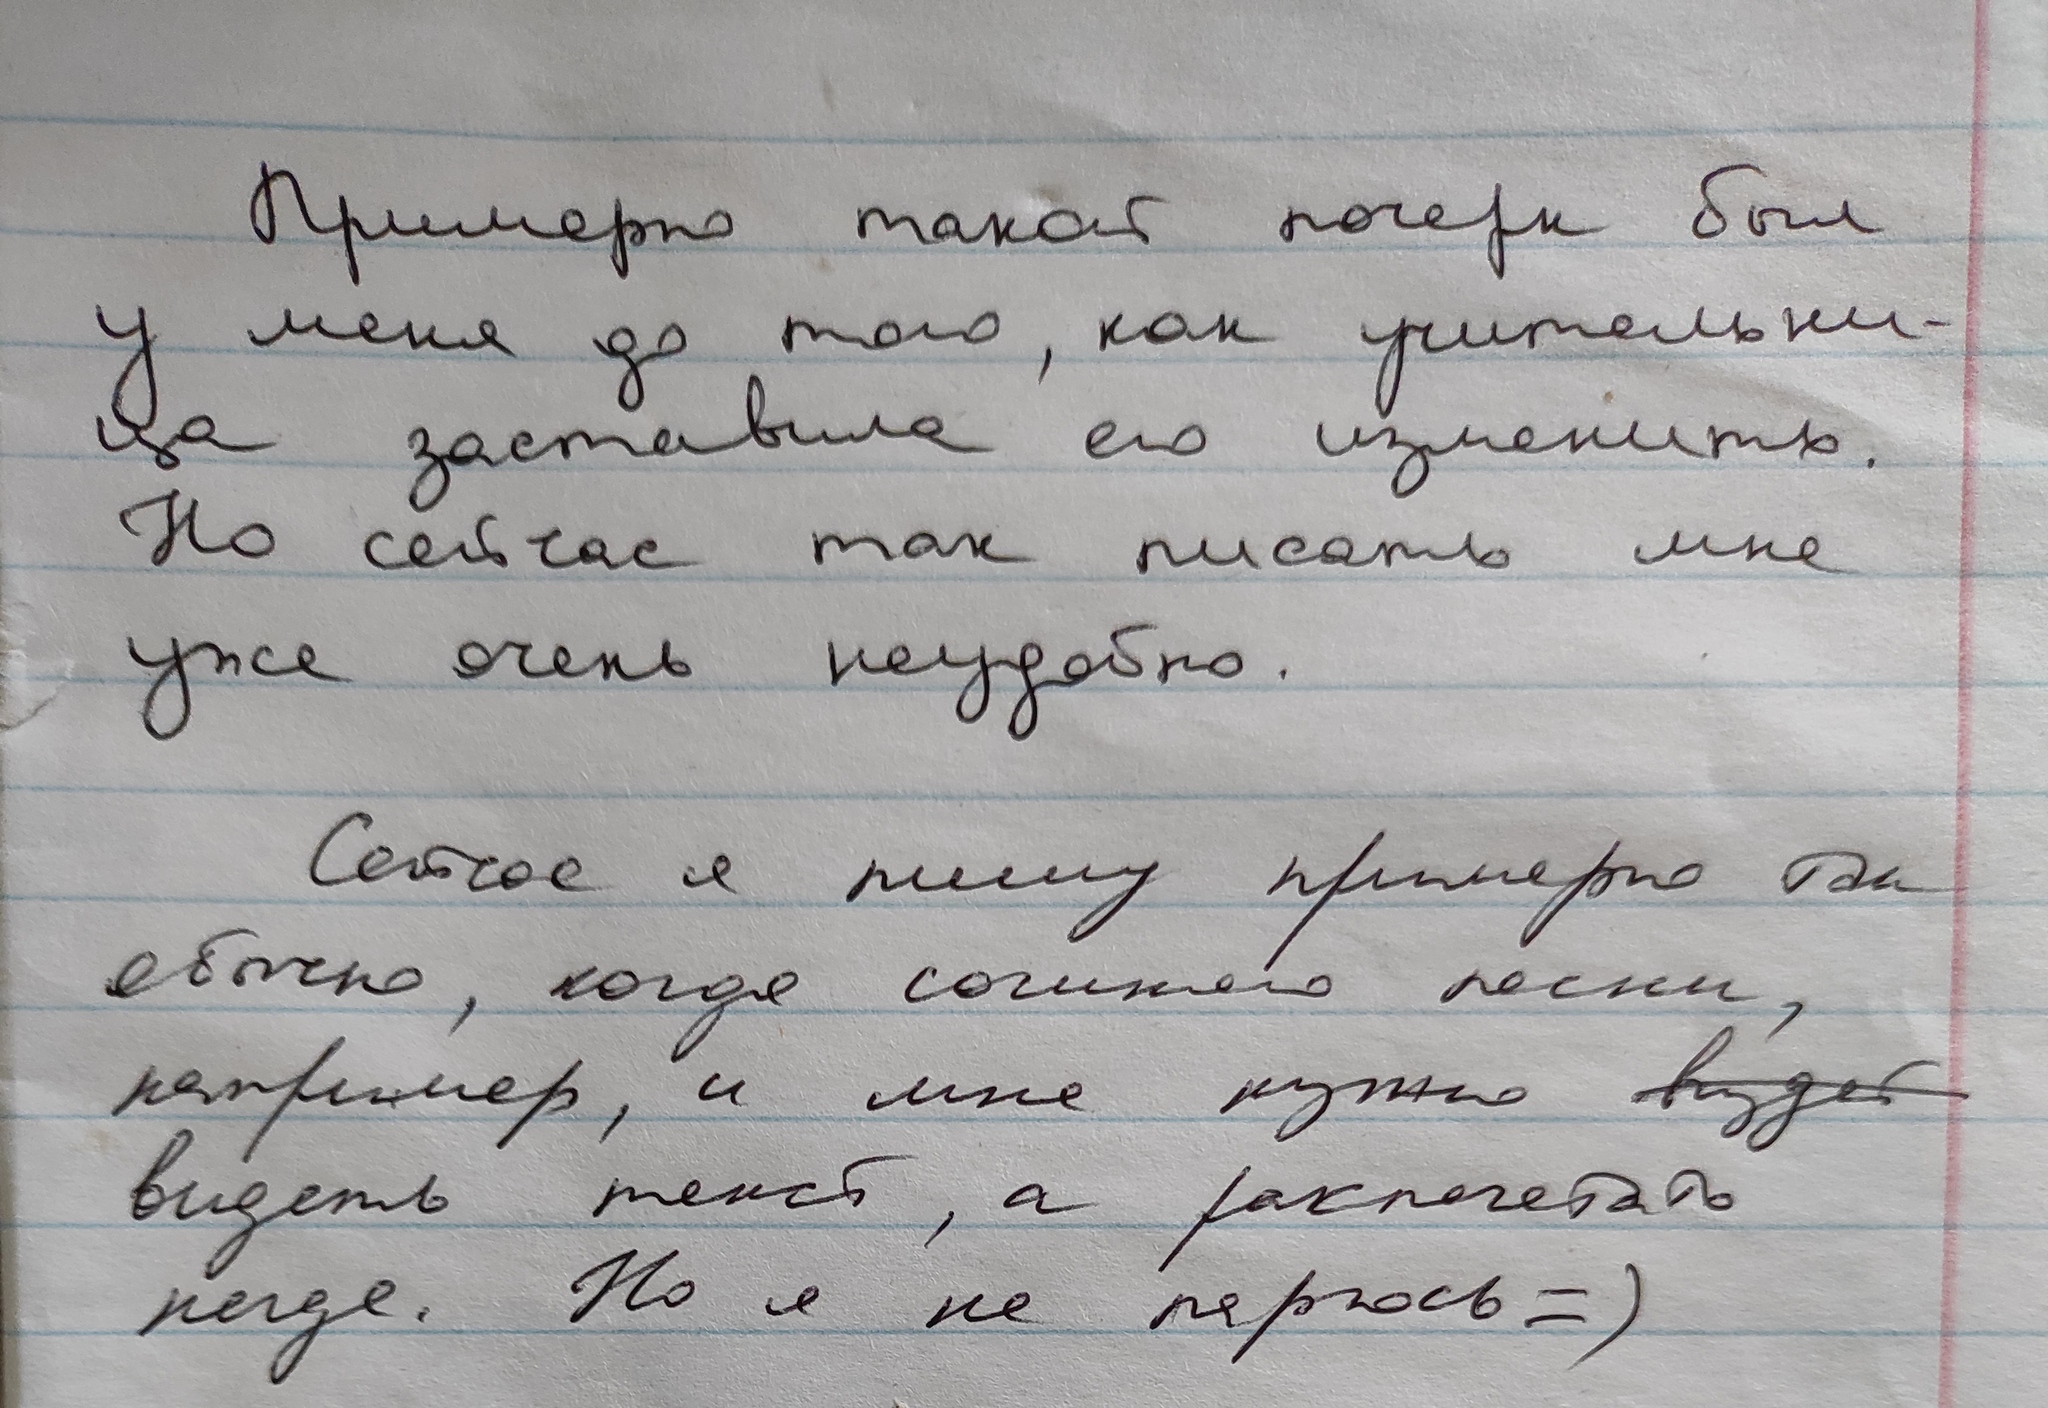 Примерно такой почерк был
у меня до того, как учительни-
ца заставила его изменить.
Но сейчас так писать мне
уже очень неудобно.
Сейчас я пишу примерно так
обычно, когда сочиняю песни,
например, и мне нужно
видеть текст, а распечатать
негде. Но я не парюсь =)